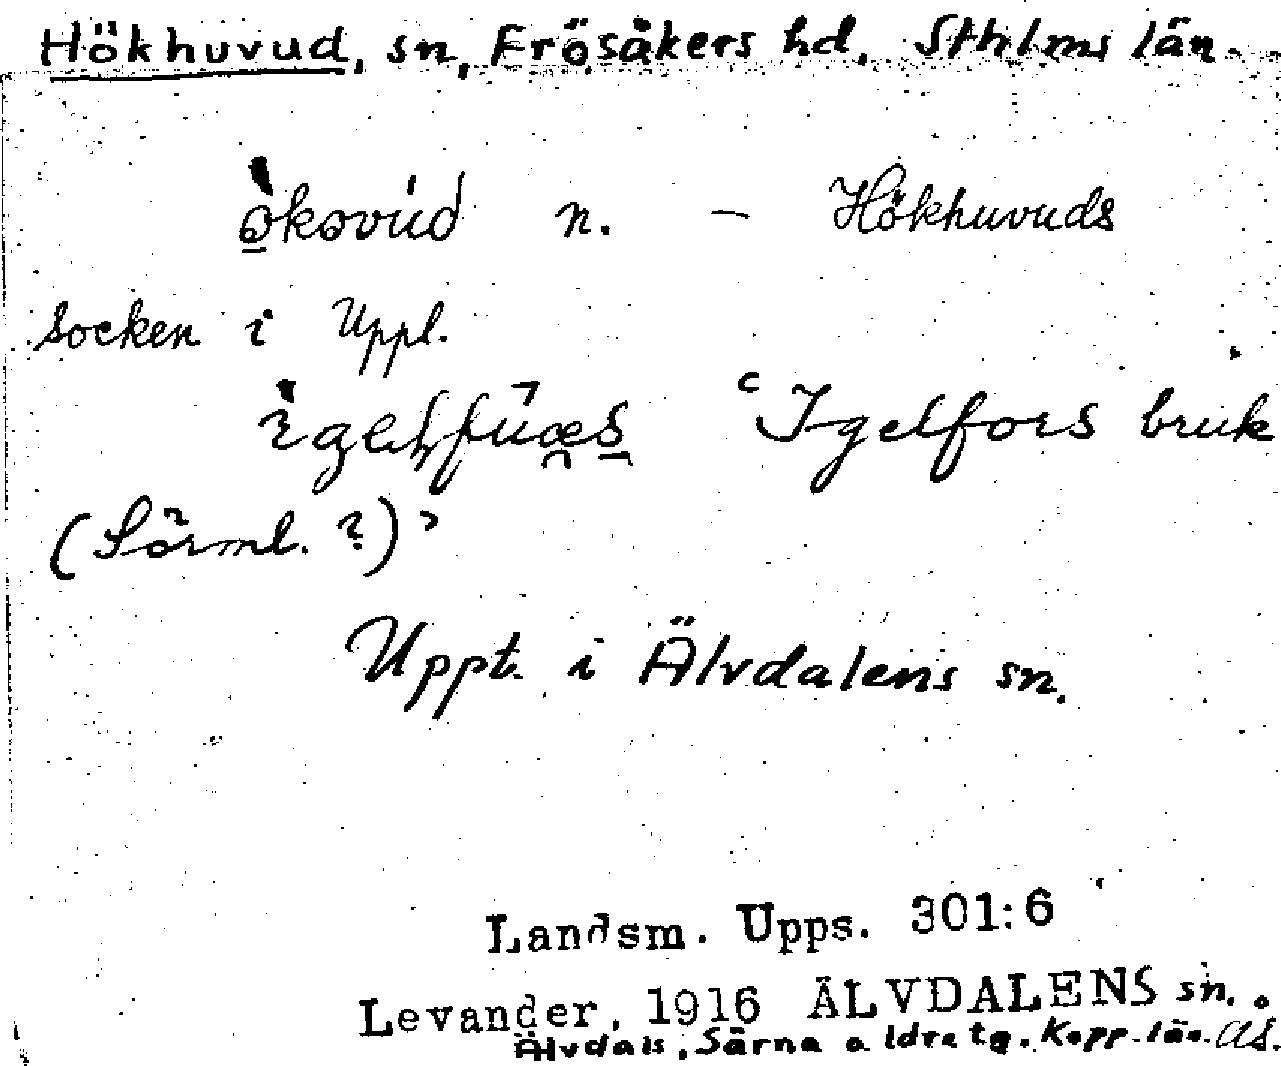 Hökhuvud, sn, Frösåkers hd, Sthlms län.
n. – Hökhuvuds
socken i Uppl.
‘Igelfors bruk
(Sörml. ?)’
Uppt. i Älvdalens sn.
Landsm. Upps. 301:6
Levander, 1916 ÄLVDALENS sn.
Älvdals, Särna o Idre tg. Kopp. län. AS.